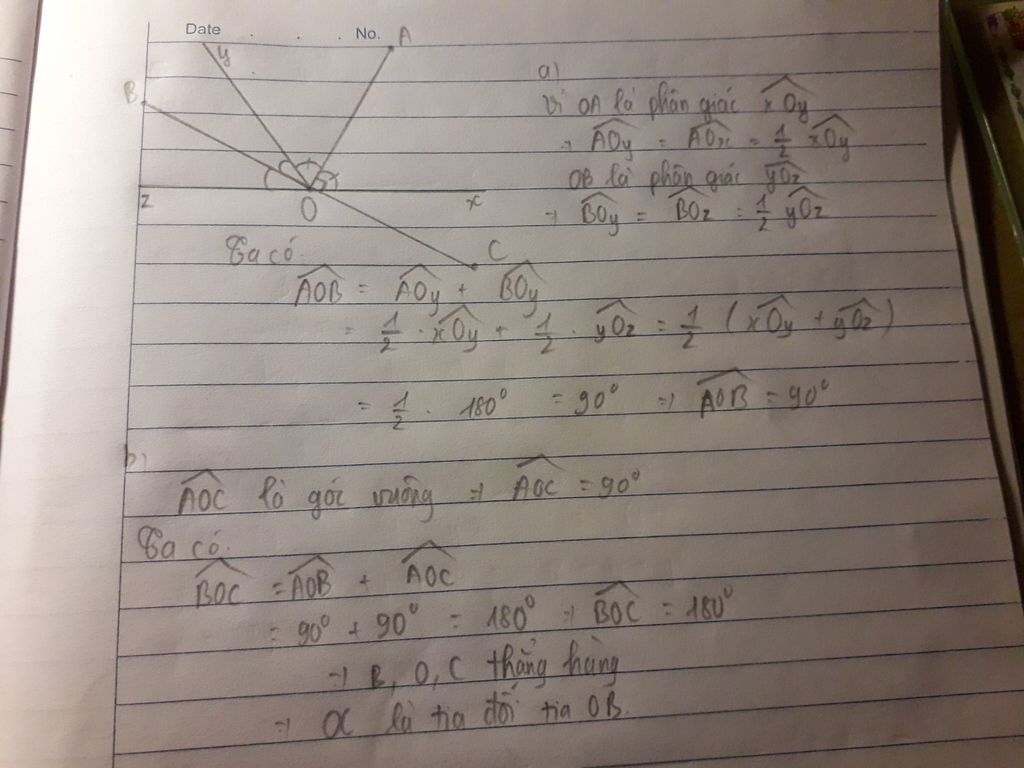 Date . . . No.
A
y
B
z
O
x
C
a)
Vì OA là phân giác \widehat{xOy}
⇒ \widehat{AOy} = \widehat{AOx} = \frac{1}{2} \widehat{xOy}
OB là phân giác \widehat{yOz}
⇒ \widehat{BOy} = \widehat{BOz} = \frac{1}{2} \widehat{yOz}
Ta có.
\widehat{AOB} = \widehat{AOy} + \widehat{BOy}
= \frac{1}{2} . \widehat{xOy} + \frac{1}{2} . \widehat{yOz} = \frac{1}{2} (\widehat{xOy} + \widehat{yOz})
= \frac{1}{2} . 180° = 90° ⇒ \widehat{AOB} = 90°
b)
\widehat{AOC} là góc vuông ⇒ \widehat{AOC} = 90°
Ta có.
\widehat{BOC} = \widehat{AOB} + \widehat{AOC}
= 90° + 90° = 180° ⇒ \widehat{BOC} = 180°
⇒ B, O, C thẳng hàng
⇒ OC là tia đối tia OB.